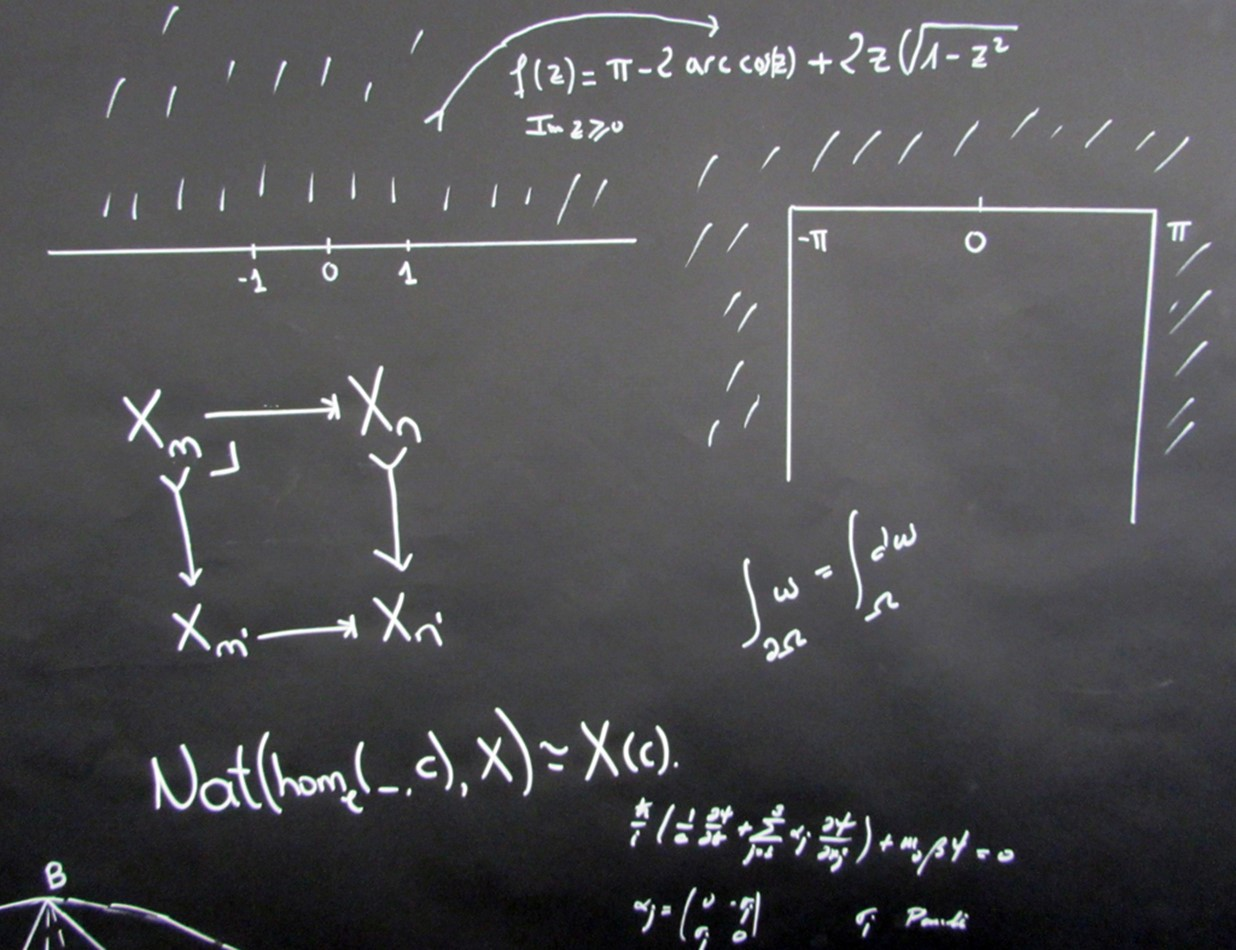 f(z) = π - 2 arc cos(z) + 2z √1-z²
Im z ≥ 0
-1 0 1
-π 0 π
X_m → X_n
X_m' → X_n'
∫_∂Ω ω = ∫_Ω dω
Nat(hom_e(_, c), X) ≃ X(c).
ħ/i (1/c ∂ψ/∂t + Σ_{j=1}^3 α_j ∂ψ/∂x_j) + m_0 βψ = 0
α_j = (0 -σ_j
σ_j 0) σ_j Pauli
B